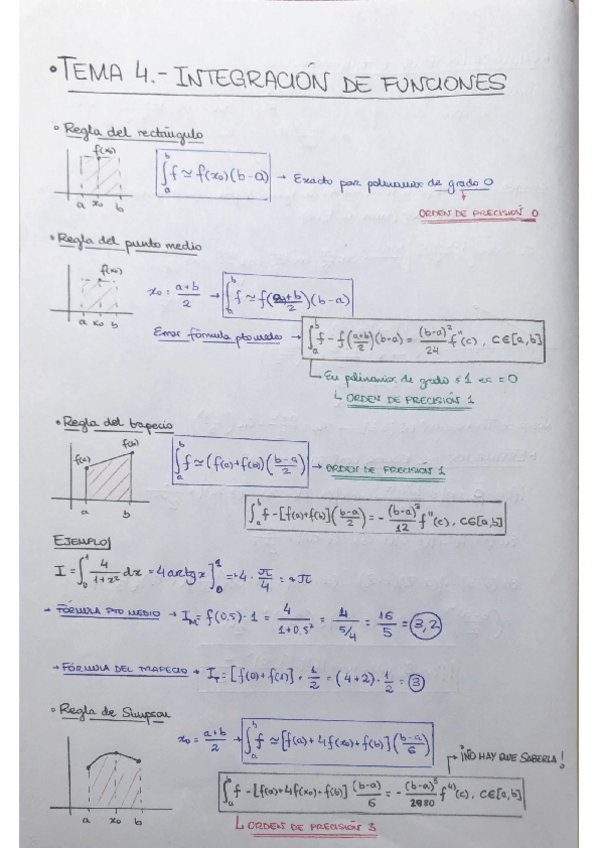 • TEMA 4.- INTEGRACIÓN DE FUNCIONES
• Regla del rectángulo
f(x₀)
∫ₐᵇ f ≃ f(x₀)(b-a) → Exacto para polinomios de grado 0
a x₀ b
ORDEN DE PRECISIÓN 0
• Regla del punto medio
f(x₀)
x₀ = a+b/2 → ∫ₐᵇ f ≃ f(a+b/2)(b-a)
a x₀ b
Error fórmula pto medio → ∫ₐᵇ f - f(a+b/2)(b-a) = (b-a)³/24 f''(c), C∈[a,b]
En polinomios de grado ≤ 1 es = 0
↳ ORDEN DE PRECISIÓN 1
• Regla del trapecio
f(a) f(b)
∫ₐᵇ f ≃ (f(a)+f(b))(b-a/2) → ORDEN DE PRECISIÓN 1
a b
∫ₐᵇ f - [f(a)+f(b)](b-a/2) = - (b-a)³/12 f''(c), C∈[a,b]
EJEMPLO
I = ∫₀¹ 4/1+x² dx = 4 arctg x]₀¹ = 4 · π/4 = π
→ FÓRMULA PTO MEDIO → I_M = f(0,5) · 1 = 4/1+0,5² = 4/5/4 = 16/5 = 3,2
→ FÓRMULA DEL TRAPECIO → I_T = [f(0)+f(1)] · 1/2 = (4+2) · 1/2 = 3
• Regla de Simpson
x₀ = a+b/2 → ∫ₐᵇ f ≃ [f(a)+4f(x₀)+f(b)](b-a/6)
¡NO HAY QUE SABERLA!
∫ₐᵇ f - [f(a)+4f(x₀)+f(b)] (b-a)/6 = - (b-a)⁵/2880 f⁴⁾(c), C∈[a,b]
a x₀ b
↳ ORDEN DE PRECISIÓN 3